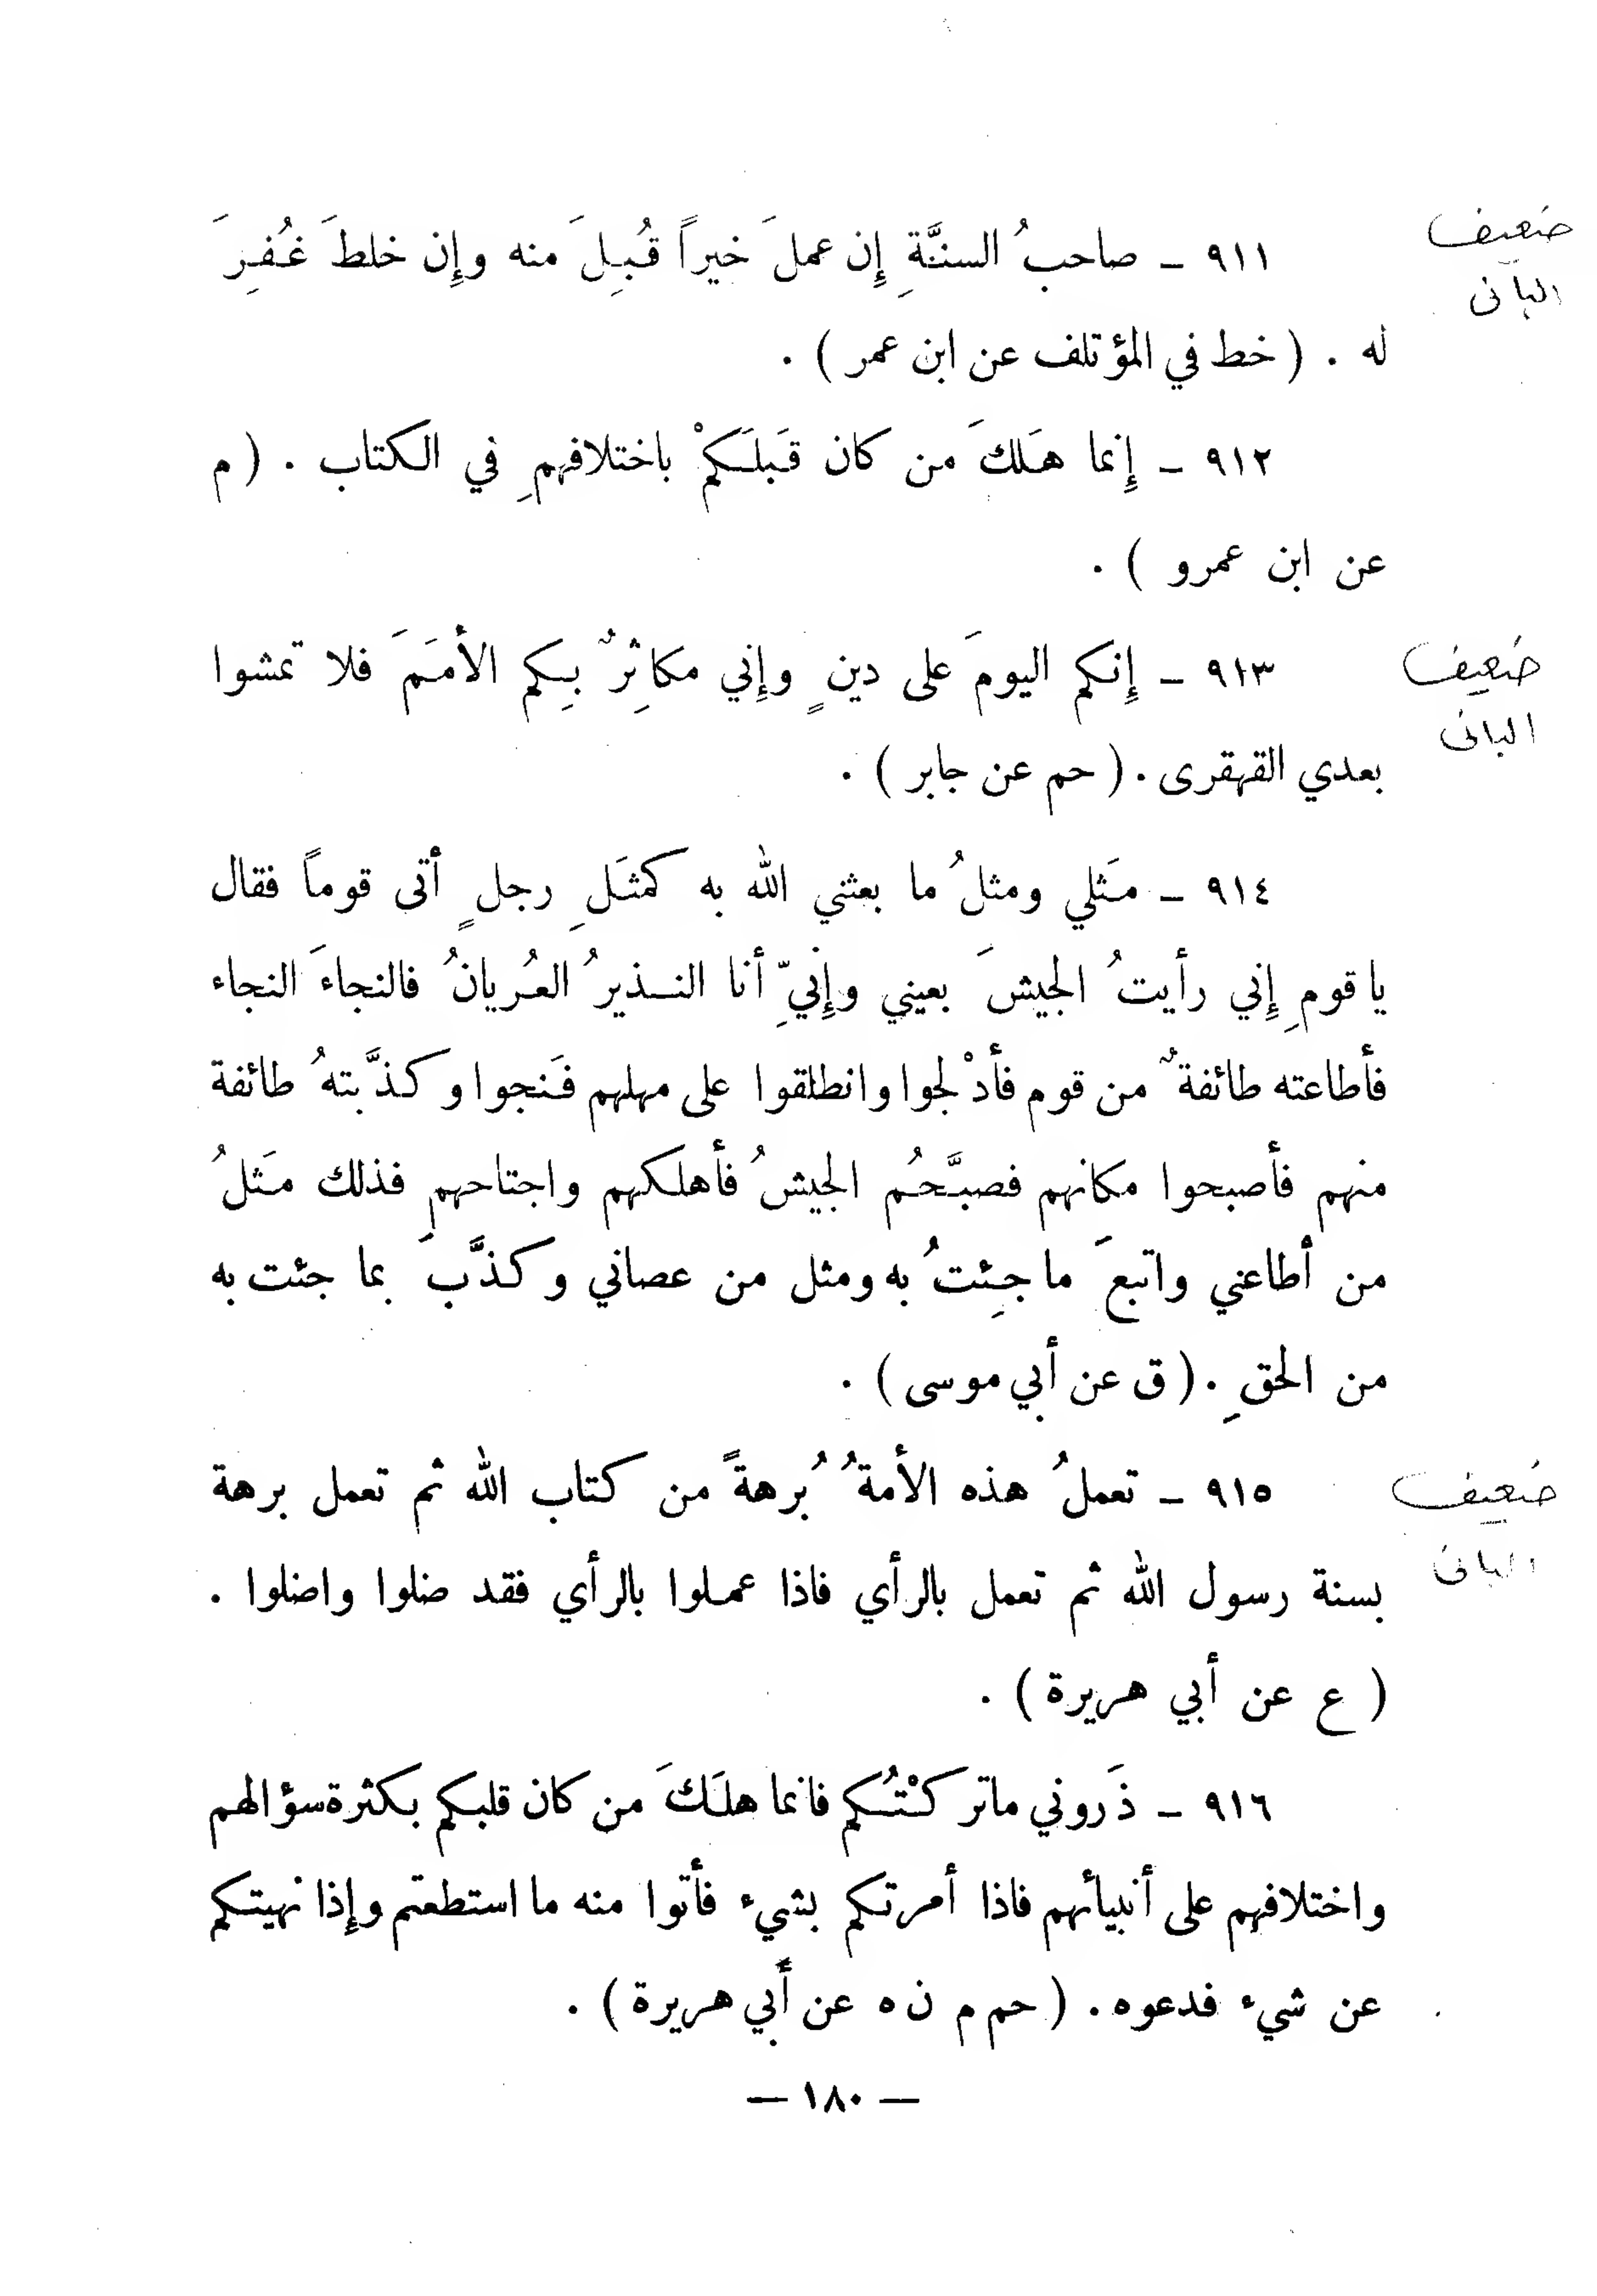 ٩١١ ـ صاحبُ السنَّةِ إِن عملَ خيراً قُبِلَ منه وإِن خلطَ غُفِرَ
ضعيف
البانى
له . ( خط في المؤتلف عن ابن عمر ) .
٩١٢ ـ إِنما هَلكَ من كان قَبلَكمْ باختلافهمِ في الكتاب . ( م
عن ابن عمرو ) .
٩١٣ ـ إِنكم اليومَ على دينٍ وإِني مكاثِرٌ بِكم الأمَمَ فلا تمشوا
ضعيف
البانى
بعدي القهقرى . ( حم عن جابر ) .
٩١٤ ـ مَثلي ومثلُ ما بعثني الله به كمثَلِ رجلٍ أتى قوماً فقال
يا قومِ إِني رأيتُ الجيشَ بعيني وإِنيِّ أنا النذيرُ العُريانُ فالنجاءَ النجاء
فأطاعته طائفةٌ من قوم فأدْلجوا وانطلقوا على مهلهم فَنجوا وكذَّبتهُ طائفة
منهم فأصبحوا مكانهم فصبَّحُم الجيشُ فأهلكهم واجتاحهمِ فذلك مَثلُ
من أطاعني واتبعَ ما جِئتُ به ومثل من عصاني وكذَّبَ بما جئت به
من الحقِ . ( ق عن أبي موسى ) .
٩١٥ ـ تعملُ هذه الأمةُ بُرهةً من كتاب الله ثم تعمل برهة
ضعيف
البانى
بسنة رسول الله ثم تعمل بالرأي فاذا عملوا بالرأي فقد ضلوا واضلوا .
( ع عن أبي هريرة ) .
٩١٦ ـ ذَروني ماتركْتُكم فانما هلَكَ من كان قلبكم بكثرة سؤالهم
واختلافهم على أنبيائهم فاذا أمرتكم بشيء فأتوا منه ما استطعتم وإِذا نهيتكم
عن شيء فدعوه . ( حم م ن ه عن أبي هريرة ) .
— ١٨٠ —